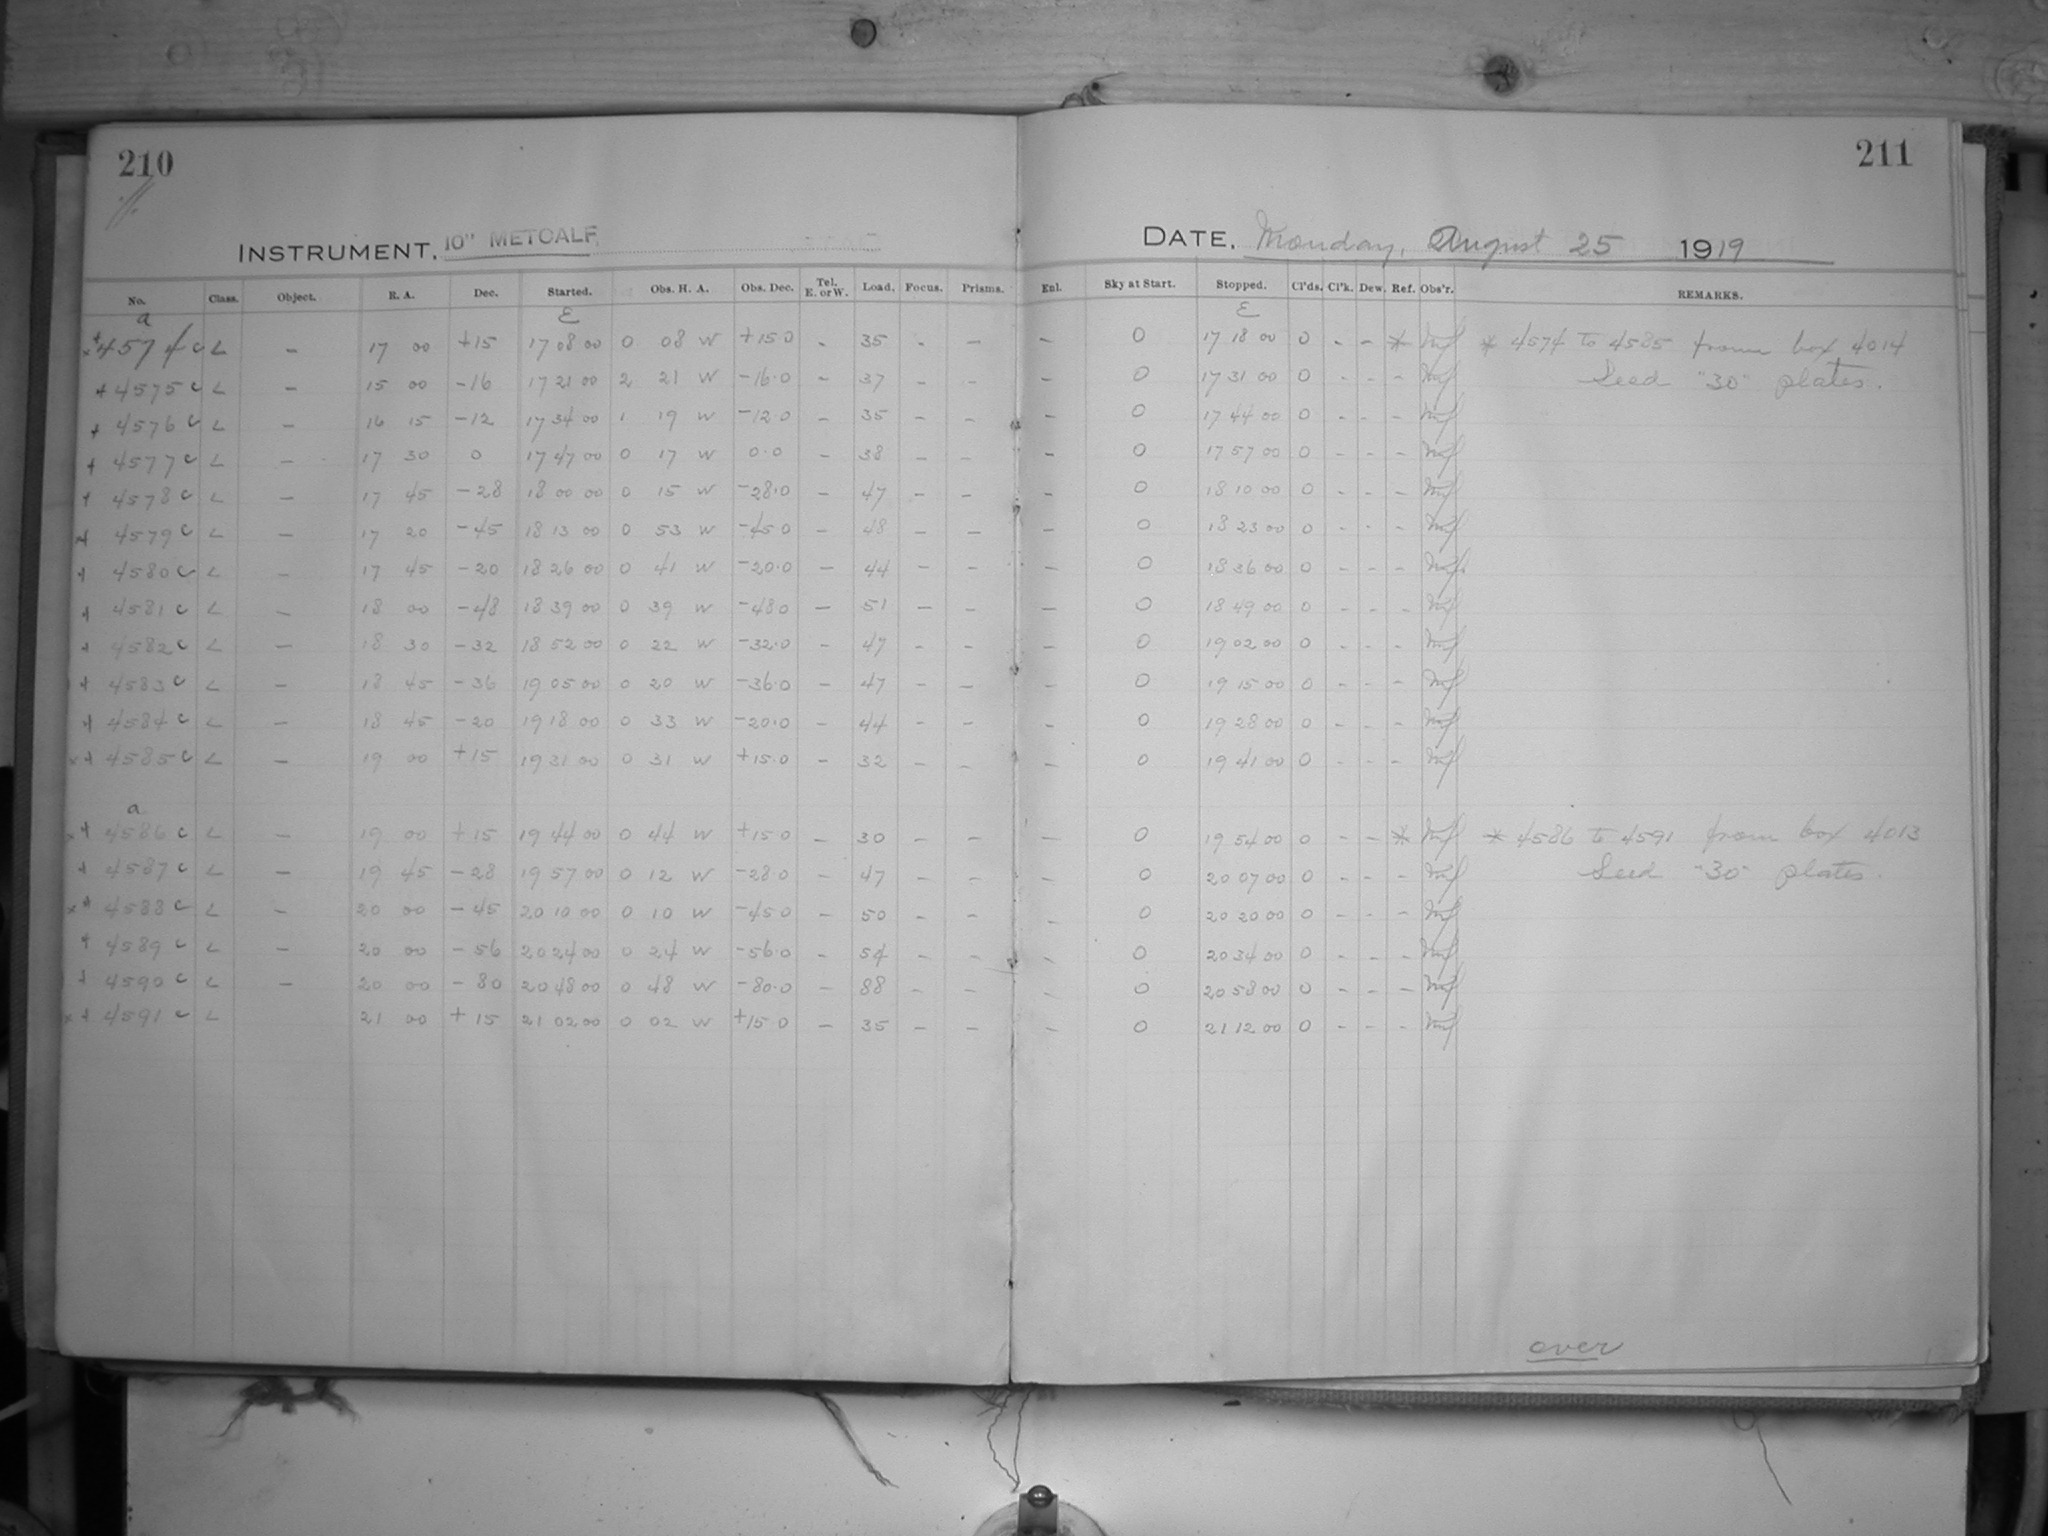 210
211
INSTRUMENT. 10" METCALF.
DATE. Monday, August 25 1919
No. Class. Object. R. A. Dec. Started. Obs. H. A. Obs. Dec. Tel. E. or W. Load. Focus. Prisms. Enl. Sky at Start. Stopped. Cl'ds. Cl'k. Dew. Ref. Obs'r. REMARKS.
a E E
x+4574c L - 17 00 +15 17 08 00 0 08 W +15.0 - 35 - - - 0 17 18 00 0 - - * * 4574 to 4585 from box 4014
+4575c L - 15 00 -16 17 21 00 2 21 W -16.0 - 37 - - - 0 17 31 00 0 - - - Seed "30" plates.
+ 4576c L - 16 15 -12 17 34 00 1 19 W -12.0 - 35 - - - 0 17 44 00 0 - - -
+ 4577c L - 17 30 0 17 47 00 0 17 W 0.0 - 38 - - - 0 17 57 00 0 - - -
+ 4578c L - 17 45 -28 18 00 00 0 15 W -28.0 - 47 - - - 0 18 10 00 0 - - -
x+ 4579c L - 17 20 -45 18 13 00 0 53 W -45.0 - 48 - - - 0 18 23 00 0 - - -
+ 4580c L - 17 45 -20 18 26 00 0 41 W -20.0 - 44 - - - 0 18 36 00 0 - - -
+ 4581c L - 18 00 -48 18 39 00 0 39 W -48.0 - 51 - - - 0 18 49 00 0 - - -
+ 4582c L - 18 30 -32 18 52 00 0 22 W -32.0 - 47 - - - 0 19 02 00 0 - - -
+ 4583c L - 18 45 -36 19 05 00 0 20 W -36.0 - 47 - - - 0 19 15 00 0 - - -
+ 4584c L - 18 45 -20 19 18 00 0 33 W -20.0 - 44 - - - 0 19 28 00 0 - - -
x+ 4585c L - 19 00 +15 19 31 00 0 31 W +15.0 - 32 - - - 0 19 41 00 0 - - -
a
x+ 4586c L - 19 00 +15 19 44 00 0 44 W +15.0 - 30 - - - 0 19 54 00 0 - - * * 4586 to 4591 from box 4013
+ 4587c L - 19 45 -28 19 57 00 0 12 W -28.0 - 47 - - - 0 20 07 00 0 - - - Seed "30" plates.
x+ 4588c L - 20 00 -45 20 10 00 0 10 W -45.0 - 50 - - - 0 20 20 00 0 - - -
+ 4589c L - 20 00 -56 20 24 00 0 24 W -56.0 - 54 - - - 0 20 34 00 0 - - -
+ 4590c L - 20 00 -80 20 48 00 0 48 W -80.0 - 88 - - - 0 20 58 00 0 - - -
x+ 4591c L 21 00 +15 21 02 00 0 02 W +15.0 - 35 - - - 0 21 12 00 0 - - -
over